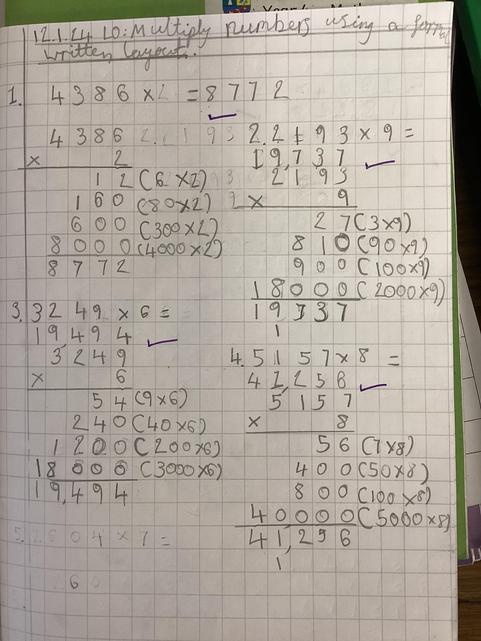 12.1.24 LO: Multiply numbers using a formal
written layout.
1. 4386 × 2 = 8772
4386
× 2
12 (6×2)
160 (80×2)
600 (300×2)
8000 (4000×2)
8772
2. 2193 × 9 =
19,737
2193
× 9
27 (3×9)
810 (90×9)
900 (100×9)
18000 (2000×9)
19737
1
3. 3249 × 6 =
19,494
3249
× 6
54 (9×6)
240 (40×6)
1200 (200×6)
18000 (3000×6)
19,494
4. 5157 × 8 =
41,256
5157
× 8
56 (7×8)
400 (50×8)
800 (100×8)
40000 (5000×8)
41,256
1
604 × 7 =
60